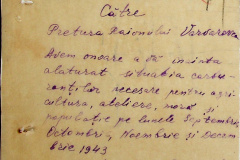 Către
Pretura Raionului Varvareuca
Avem onoare a vă înainta
alăturat situația carbu-
ranților necesare pentru agri-
cultura, ateliere, mori și
populație pe lunele Septembrie,
Octombrie, Noembrie și Decem-
brie 1943